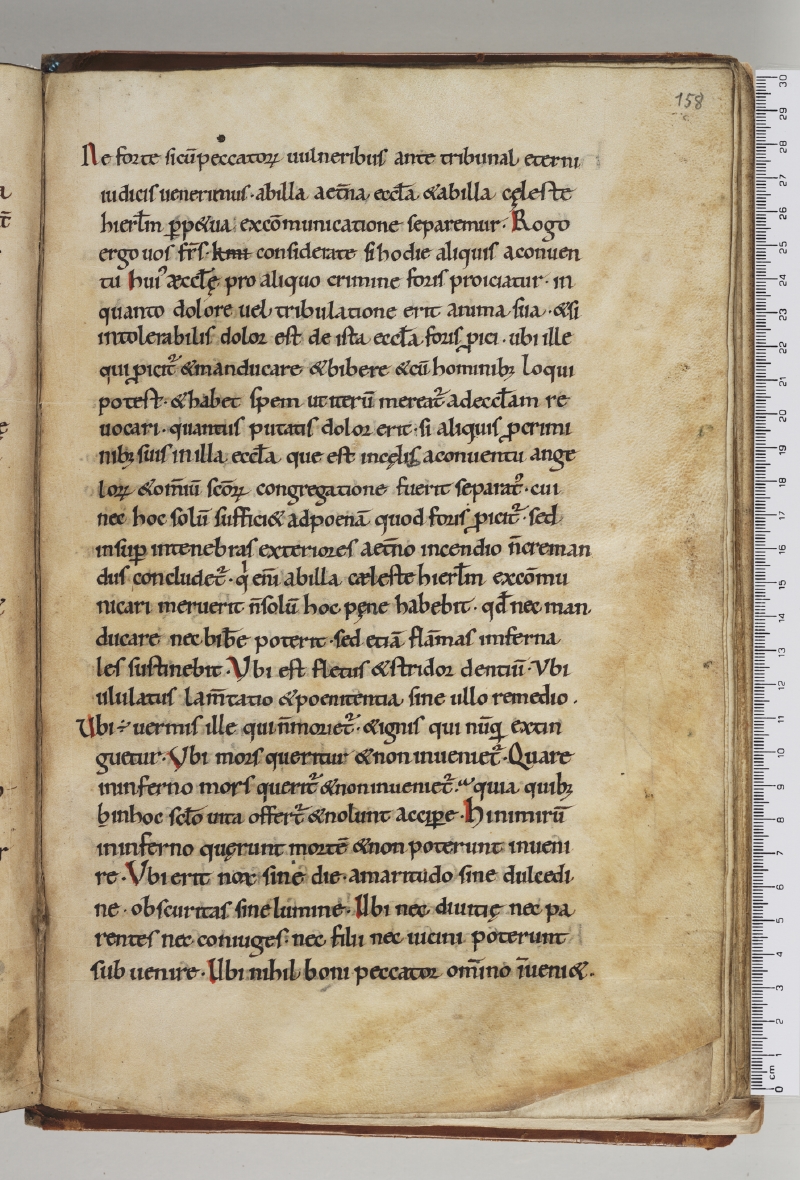 158
Ne forte sicū peccatorꝝ uulneribus ante tribunal eterni
iudicis uenerimus · ab illa aet̄na eccl̄a & ab illa cęleste
hierl̄m ꝑp&ua excōmunicatione separemur · Rogo
ergo uos fr̄s · kmi considerate si hodie aliquis a conuen
tu huiꝰ æccl̄ę pro aliquo crimine foris proiciatur · in
quanto dolore uel tribulatione erit anima sua · & si
intolerabilis dolor est de ista eccl̄a foris ꝓici · ubi ille
qui ꝓicit᷑ & manducare & bibere & cū hominibꝫ loqui
potest · & habet spem ut iterū mereat᷑ ad eccl̄am re
uocari · quantus putatis dolor erit · si aliquis ꝓ crimi
nibꝫ suis in illa eccl̄a que est in cęlis a conuentu ange
lorꝝ & omiū sc̄orꝝ congregatione fuerit separat᷑ · cui
nec hoc solū suffici& ad poenā quod foris ꝓicit᷑ · sed
insuꝑ in tenebras exteriores aet̄no incendio n̄ creman
dus concludet᷑ · qi em̄ ab illa cæleste hierl̄m excōmu
nicari meruerit n̄ solū hoc pęne habebit · qd̄ nec man
ducare nec bib̄e poterit · sed etiā flam̄as inferna
les sustinebit · Vbi est fletus & stridor dentiū · Vbi
ululatus lam̄tatio & poenitentia sine ullo remedio .
Vbi ÷ uermis ille qui n̄ moriet᷑ · & ignis qui nūq̄ extin
guetur · Vbi mors queritur & non inueniet᷑ · Quare
in inferno mors querit᷑ & non inueniet᷑ · quia quibꝫ
hin hoc sclo uita offert᷑ & nolunt accipe · Hi nimirū
in inferno quęrunt mortē & non poterunt inueni
re · Vbi erit nox sine die · amaritudo sine dulcedi
ne · obscuritas sine lumine · Ubi nec diuitię nec pa
rentes nec coniuges · nec filii nec uicini poterunt
sub uenire · Ubi nihil boni peccator om̄ino īueni& .